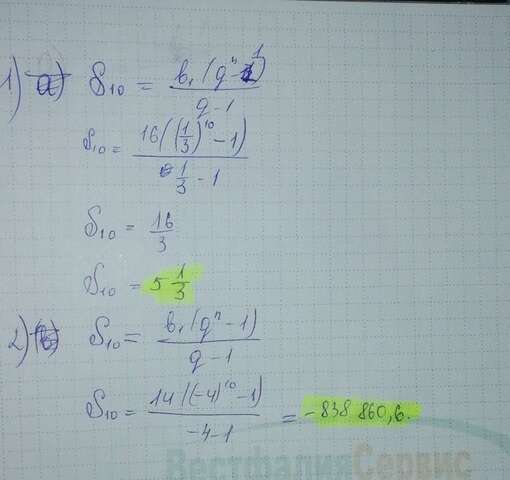 1) a) S₁₀ = b₁(qⁿ-1)/q-1
S₁₀ = 16((1/3)¹⁰-1)/1/3-1
S₁₀ = 16/3
S₁₀ = 5 1/3
2) b) S₁₀ = b₁(qⁿ-1)/q-1
S₁₀ = 14((-4)¹⁰-1)/-4-1 = -838 860,6.
ВестфалияСервис